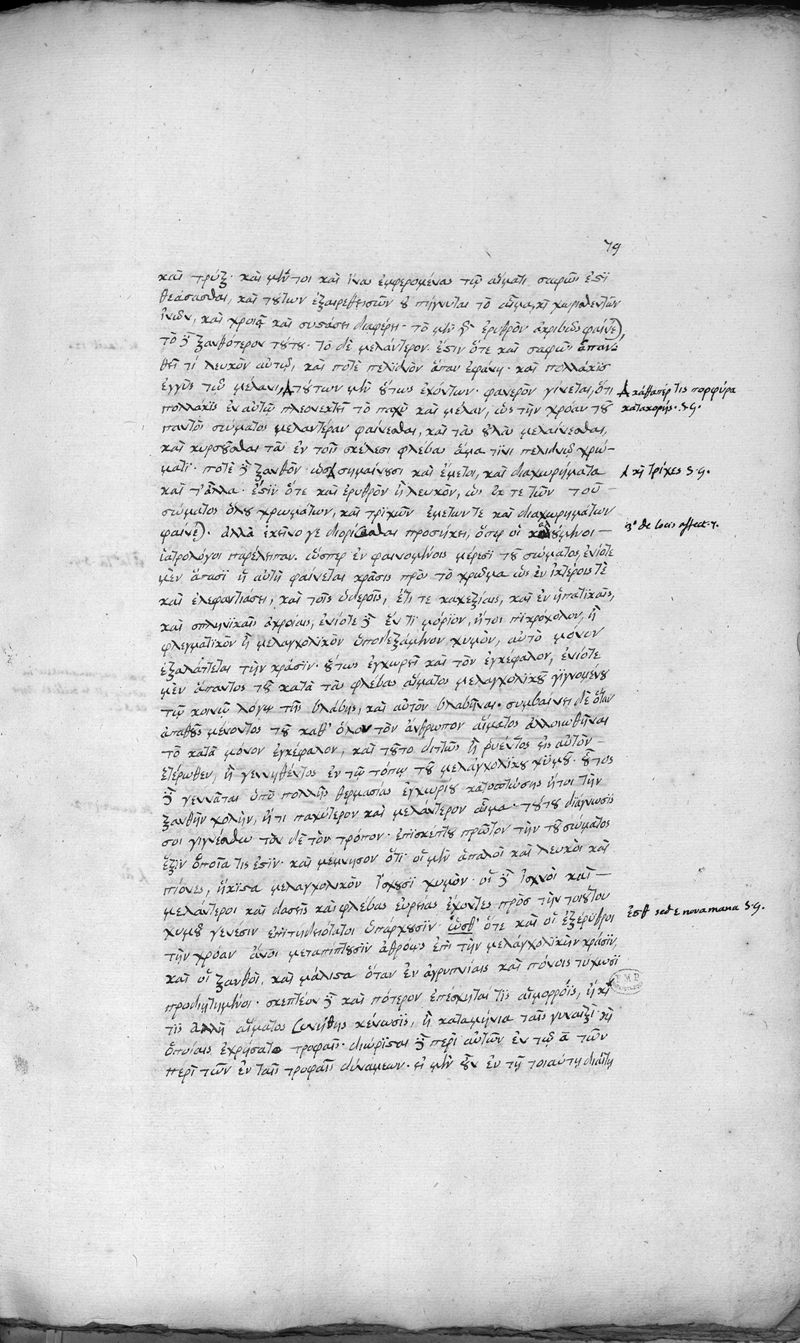 79
καὶ τρὺξ. καὶ μέντοι καὶ ἶνας ἐμφερομένας τῷ αἵματι σαφῶς ἐστι
θεάσασθαι, καὶ τούτων ἐξαιρεθεισῶν οὐ πήγνυται τὸ αἷμα, καὶ χωρισθεισῶν
ἰνῶν, καὶ χροιᾷ καὶ συστάσει διαφέρει. τὸ μὲν γὰρ ἐρυθρὸν ἀκριβῶς φαίνεται,
τὸ δὲ ξανθότερον τούτου. τὸ δὲ μελάντερον ἐστὶν ὅτε καὶ σαφῶς ἐπαν-
θεῖ τί λευκὸν αὐτῷ, καὶ ποτὲ πελιδνὸν ἅπαν ἐφάνη. καὶ πολλάκις
ἐγγὺς τοῦ μέλανος, τούτων μὲν οὕτως ἐχόντων. φανερὸν γίνεται, ὅτι
καθάπερ τις πορφύρα
πολλάκις ἐν αὐτῷ πλεονεκτεῖ τὸ παχὺ καὶ μέλαν, ὡς τὴν χρόαν τοῦ
κατακορής. S.G.
παντὸς σώματος μελαντέραν φαίνεσθαι, καὶ τὰς οὐλὰς μελαίνεσθαι,
καὶ κιρσοῦσθαι τὰς ἐν τοῖς σκέλεσι φλέβας ἅμα τινι πελιδνῷ χρώ-
ματι. ποτὲ δὲ ξανθὸν. ὡς σημαίνουσι καὶ ἔμετοι, καὶ διαχωρήματα
καὶ τρίχες S.G.
καὶ τἄλλα. ἔστιν ὅτε καὶ ἐρυθρὸν ἢ λευκὸν, ὡς ἔκ τε τῶν τοῦ
σώματος ὅλου χρωμάτων, καὶ τριχῶν ἐμέτων τε καὶ διαχωρημάτων
φαίνεται. ἀλλὰ ἐκεῖνο γε διορίσασθαι προσήκει, ὅπερ οἱ καλούμενοι
3º de locis affect. 7.
ἰατρολόγοι παρέλιπαν. ὥσπερ ἐν φαινομένοις μέρεσι τοῦ σώματος, ἐνίοτε
μὲν ἅπασι ἡ αὐτὴ φαίνεται κρᾶσις πρὸς τὸ χρῶμα ὡς ἐν ἰκτέροις τὲ
καὶ ἐλεφαντιάσει, καὶ τοῖς ὑδέροις, ἔτι τε καχεξίαις, καὶ ἐν ἡπατικαῖς,
καὶ σπληνικαῖς ἀχροίαις, ἐνίοτε δὲ ἕν τι μόριον, ἤτοι πικρόχολον, ἢ
φλεγματικὸν ἢ μελαγχολικὸν ὑποδεξάμενον χυμὸν, αὐτὸ μόνον
ἐξαλάττεται τὴν κρᾶσιν. οὕτως ἐγχωρεῖ καὶ τὸν ἐγκέφαλον, ἐνίοτε
μὲν ἅπαντος τοῦ κατὰ τὰς φλέβας αἵματος μελαγχολικοῦ γιγνομένου
τῷ κοινῷ λόγῳ τῆς βλάβης, καὶ αὐτὸν βλαβῆναι. συμβαίνει δὲ ὅταν
ἀπαθοῦς μένοντος τοῦ καθ' ὅλον τὸν ἄνθρωπον αἵματος ἀλλοιωθῆναι
τὸ κατὰ μόνον ἐγκέφαλον, καὶ τοῦτο διττῶς ἢ ῥυέντος εἰς αὐτὸν
ἑτέρωθεν, ἢ γεννηθέντος ἐν τῷ τόπῳ τοῦ μελαγχολικοῦ χυμοῦ. οὗτος
δὲ γεννᾶται ὑπὸ πολλῆς θερμασίας ἐγχωρίου κατοπτώσης ἤτοι τὴν
ξανθὴν χολὴν, ἤ τι παχύτερον καὶ μελάντερον αἷμα. τούτου διάγνωσίς
σοι γιγνέσθω τόνδε τὸν τρόπον. ἐπισκέπτου πρῶτον τὴν τοῦ σώματος
ἕξιν ὁποία τις ἐστὶν. καὶ μέμνησον ὅτι οἱ μὲν ἁπαλοὶ καὶ λευκοὶ καὶ
πίονες, ἥκιστα μελαγχολικὸν ἴσχουσι χυμὸν. οἱ δὲ ἰσχνοὶ καὶ
μελάντεροι καὶ δασεῖς καὶ φλέβας εὐρείας ἔχοντες πρὸς τὴν τοιούτου
χυμοῦ γένεσιν ἐπιτηδειότατοι ὑπάρχουσιν. ὧσθ' ὅτε καὶ οἱ ἐξέρυθροι
ἔσθ sed e nova manu S.G.
τὴν χρόαν ἄνθρωποι μεταπίπτουσιν ἀθρόως ἐπὶ τὴν μελαγχολικὴν κρᾶσιν,
καὶ οἱ ξανθοὶ, καὶ μάλιστα ὅταν ἐν ἀγρυπνίαις καὶ πόνοις τύχωσι
προδιῃτημένοι. σκεπτέον δὲ καὶ πότερον ἐπέσχηται τις αἱμορροῒς, ἢ καὶ
τις ἄλλη αἵματος συνήθης κένωσις, ἢ καταμήνια ταῖς γυναιξὶ καὶ
ὁποίαις ἐχρήσατο τροφαῖς. διώρισται δὲ περὶ αὐτῶν ἐν τῷ α τῶν
περὶ τῶν ἐν ταῖς τροφαῖς δυνάμεων. εἰ μὲν οὖν ἐν τῇ τοιαύτῃ διαίτῃ